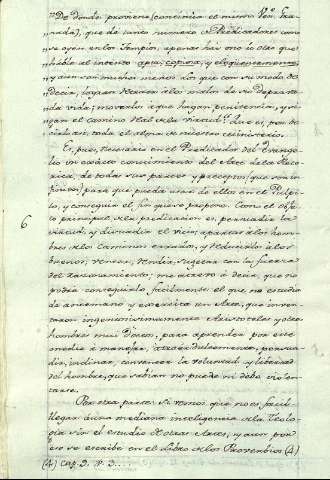 „De donde proviene (continúa el mismo Ven. Gra-
nada), que de tanto numero de Predicadores como
se oyen en los Templos, apenas hay uno ù otro que
hable al intento apta, copiosa, y eloquentemente;
y aun son muchos menos los que con su modo de
decir, sacan de tanto à los malos de su deprava-
da vida; moverlos à que hagan penitencia, y si-
gan el camino de la virtud? Que es, por de-
cirlo así, todo el alma de nuestro ministerio.
Es, pues, necesario en el Predicador del Evange-
lio un exacto conocimiento del Arte de la Reto-
rica, de todas sus partes y preceptos,
para que pueda usar de ellos en el Pulpi-
to, y conseguir el fin que se propone. Como el obje-
to principal de la predicacion es persuadir la
virtud, y disuadir el vicio; apartar à los hom-
bres de los caminos errados, y reducirlos à los
buenos; vencer, rendir, sugetar con la fuerza
del razonamiento; me atrevo à decir, que no
podrá conseguirlo facilmente el que no estudia
de antemano y exercita un Arte, que inven-
taron ingeniosisimamente Aristoteles y otros
hombres mui Doctos, para aprender por este
medio à manejar, atraer dulcemente, persua-
dir, inclinar, convencer la voluntad y libertad
del hombre, que sabian no puede ni debe violen-
tarse.
Por otra parte: Si vemos que no es facil
llegar à una mediana inteligencia de la Teolo-
gia sin el estudio de otras Artes, y aun por
eso se escribe en el Libro de los Proverbios (4)
(4) Cap. 9. V. 3.
6